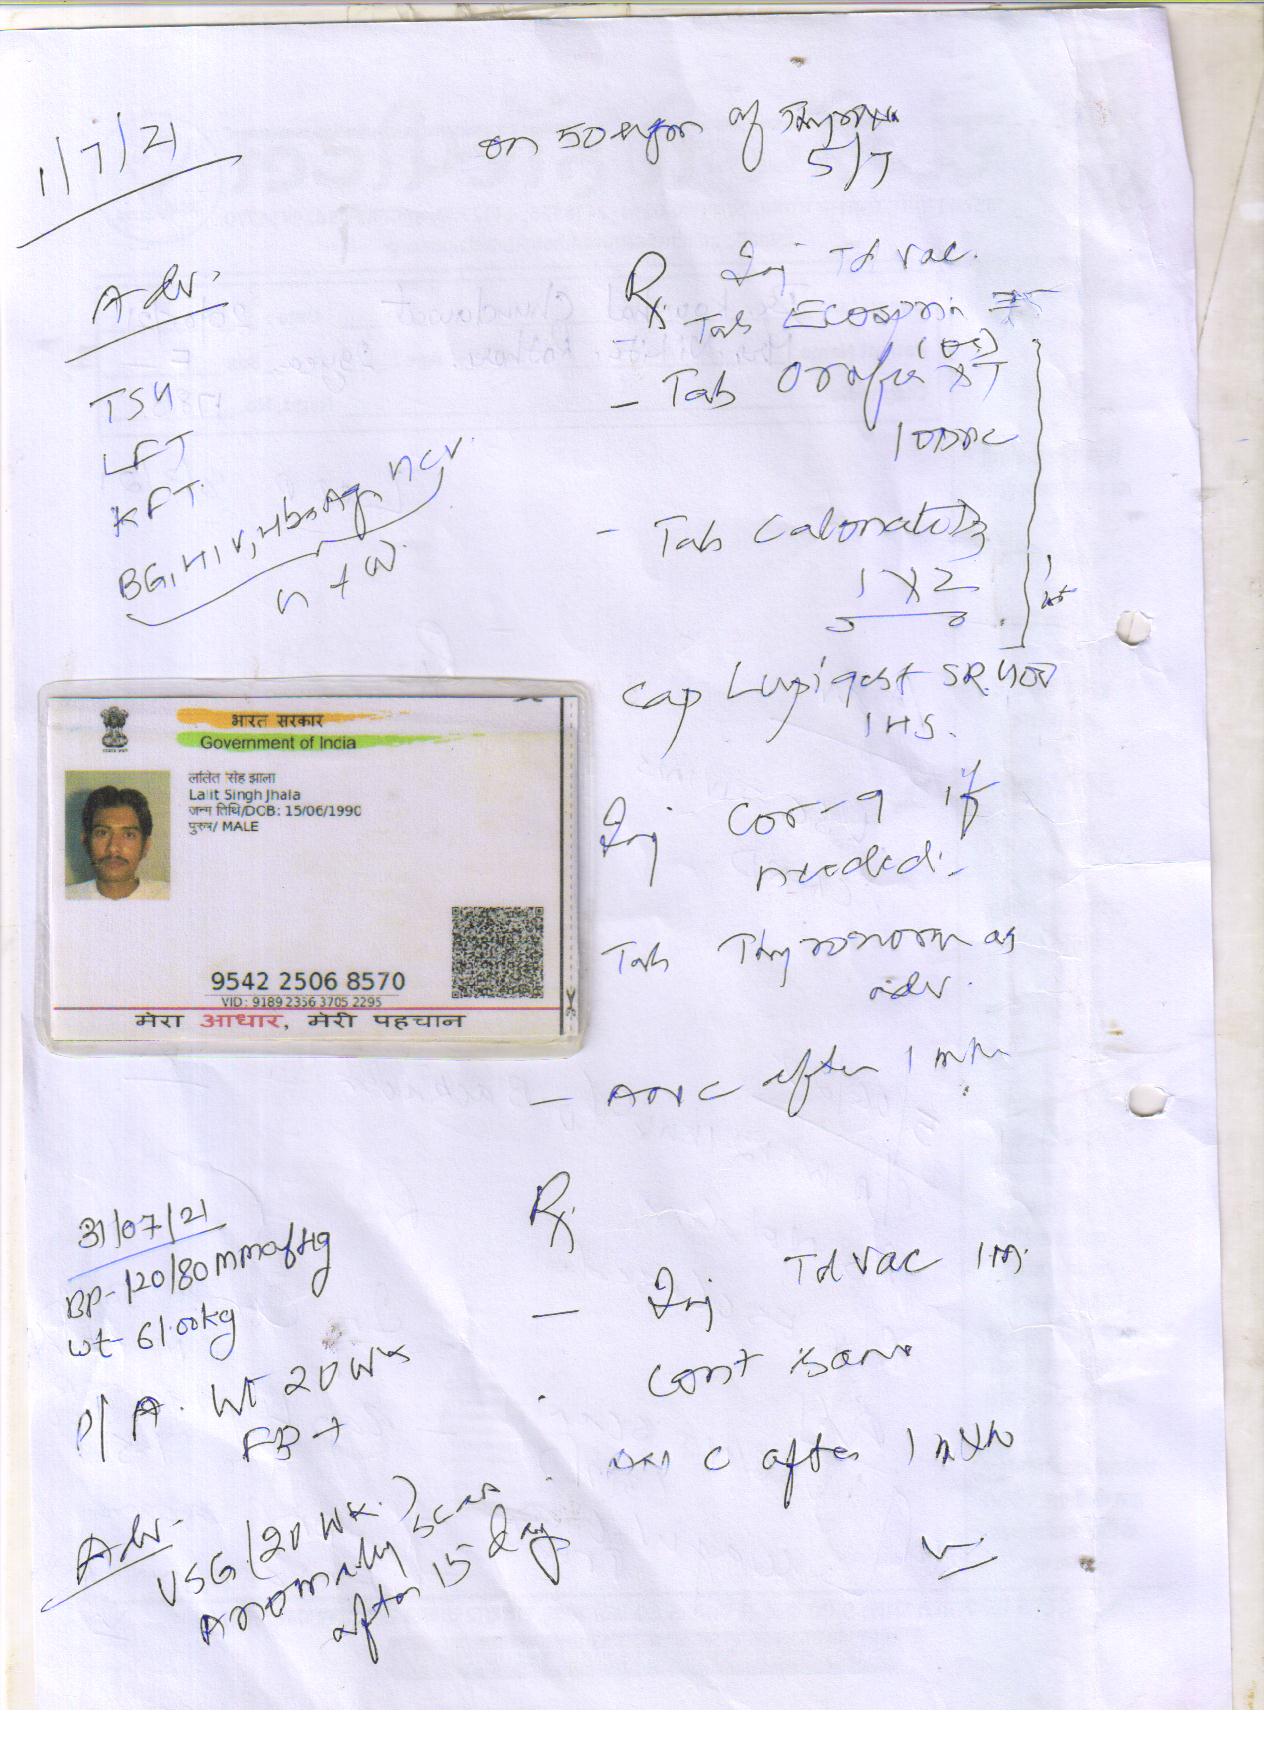 1/7/21
on 50 of
5/7
Adv.
TSH
LFT
KFT.
BG, HIV, HbsAg, HCV.
H + W.
Rx Inj Td vac.
Tab Ecosprin 75
(OD)
- Tab Orofer XT
1 OD
- Tab
1 X 2
Cap SR 400
1 HS.
Inj Cor-9 if
needed.
Tab Thyronorm as
adv.
- ANC after 1
भारत सरकार
Government of India
ललित सिंह झाला
Lalit Singh Jhala
जन्म तिथि/DOB: 15/06/1990
पुरुष/ MALE
9542 2506 8570
VID: 9189 2356 3705 2295
मेरा आधार, मेरी पहचान
31/07/21
BP- 120/80 mmofHg
wt- 61.00kg
P/A. 20 Wks
FB +
Adv-
USG (20 Wk.)
Anomaly scan
after 15 day
Rx
- Inj Td vac IM
Cont same
ANC after 1 mnth